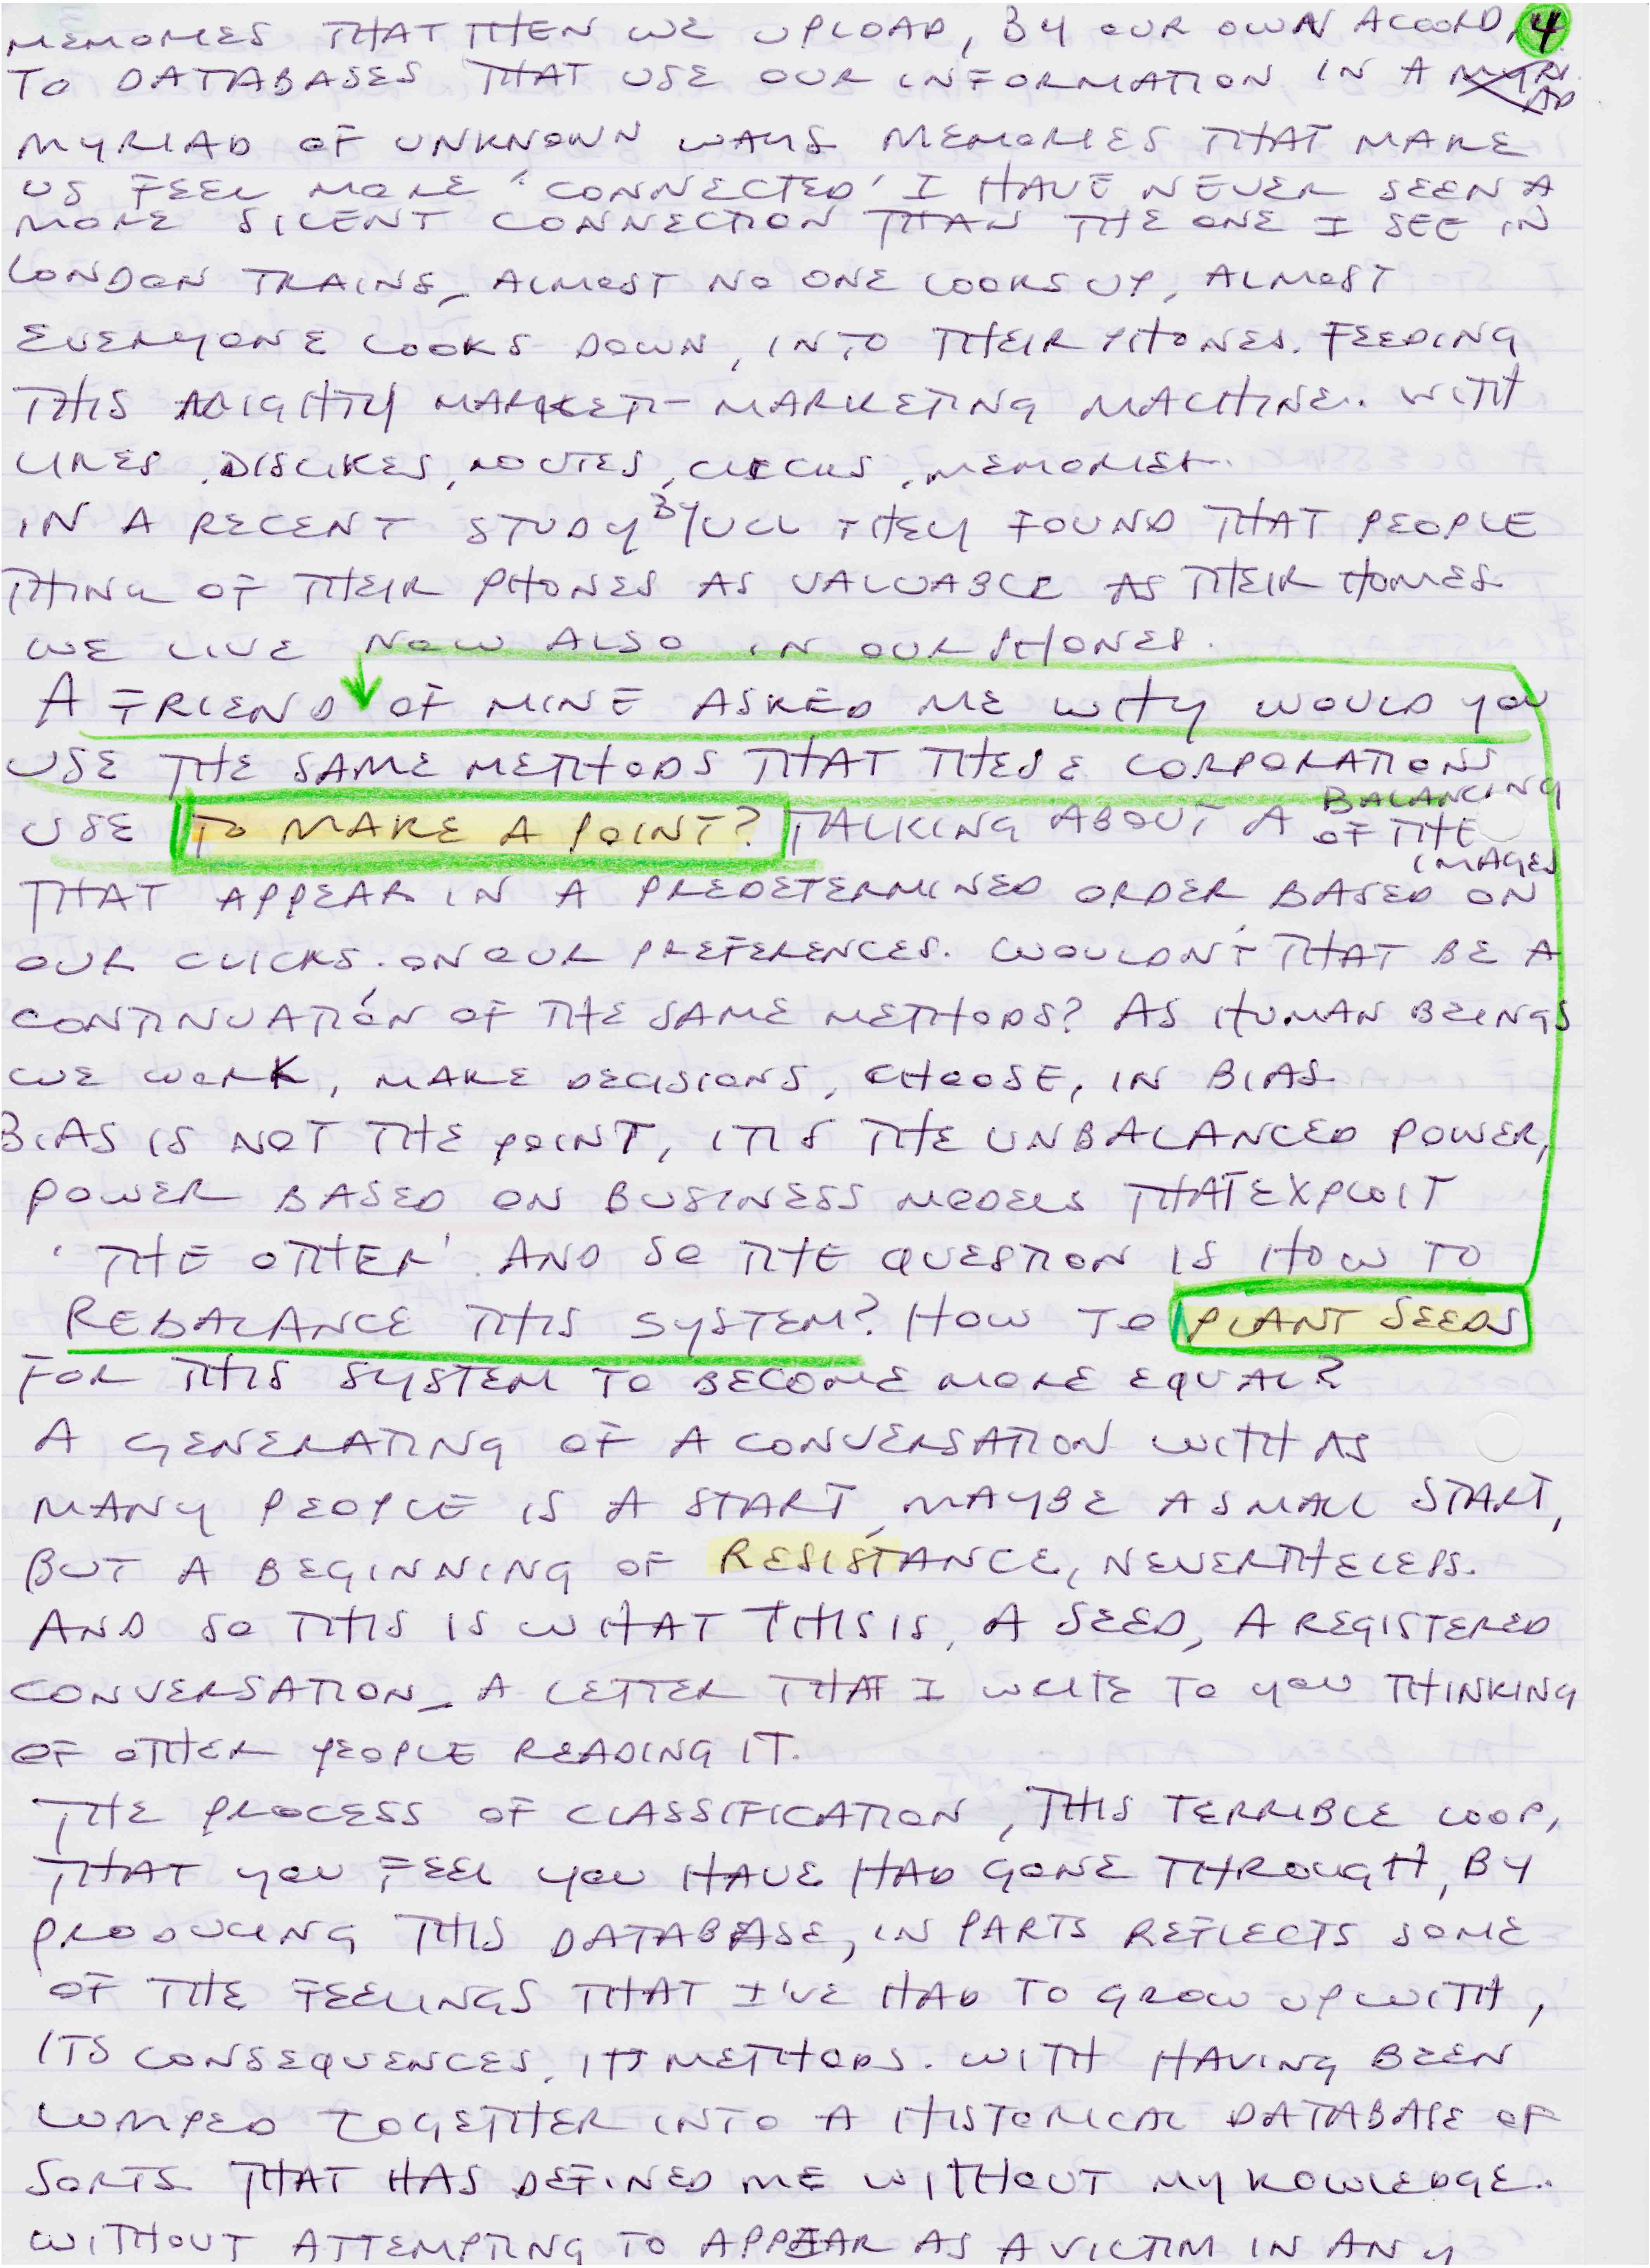 MEMORIES THAT THEN WE UPLOAD, BY OUR OWN ACCORD, 4
TO DATABASES THAT USE OUR INFORMATION IN A MYRI
AD
MYRIAD OF UNKNOWN WAYS MEMORIES THAT MAKE
US FEEL MORE 'CONNECTED' I HAVE NEVER SEEN A
MORE SILENT CONNECTION THAN THE ONE I SEE IN
LONDON TRAINS, ALMOST NO ONE LOOKS UP, ALMOST
EVERYONE LOOKS DOWN, INTO THEIR PHONES. FEEDING
THIS MIGHTY MARKET-MARKETING MACHINE. WITH
LIKES, DISLIKES, ROUTES, CLICKS, MEMORIES.
IN A RECENT STUDY BY UCL THEY FOUND THAT PEOPLE
THING OF THEIR PHONES AS VALUABLE AS THEIR HOMES.
WE LIVE NOW ALSO IN OUR PHONES.
A FRIEND OF MINE ASKED ME WHY WOULD YOU
USE THE SAME METHODS THAT THESE CORPORATIONS
USE TO MAKE A POINT? TALKING ABOUT A BALANCING
OF THE
IMAGES
THAT APPEAR IN A PREDETERMINED ORDER BASED ON
OUR CLICKS. ON OUR PREFERENCES. WOULDN'T THAT BE A
CONTINUATIÓN OF THE SAME METHODS? AS HUMAN BEINGS
WE WORK, MAKE DECISIONS, CHOOSE, IN BIAS.
BIAS IS NOT THE POINT, IT IS THE UNBALANCED POWER,
POWER BASED ON BUSINESS MODELS THAT EXPLOIT
'THE OTHER'. AND SO THE QUESTION IS HOW TO
REBALANCE THIS SYSTEM? HOW TO PLANT SEEDS
FOR THIS SYSTEM TO BECOME MORE EQUAL?
A GENERATING OF A CONVERSATION WITH AS
MANY PEOPLE IS A START, MAYBE A SMALL START,
BUT A BEGINNING OF RESISTANCE, NEVERTHELESS.
AND SO THIS IS WHAT THIS IS, A SEED, A REGISTERED
CONVERSATION_ A LETTER THAT I WRITE TO YOU THINKING
OF OTHER PEOPLE READING IT.
THE PROCESS OF CLASSIFICATION, THIS TERRIBLE LOOP,
THAT YOU FEEL YOU HAVE HAD GONE THROUGH, BY
PRODUCING THIS DATABASE, IN PARTS REFLECTS SOME
OF THE FEELINGS THAT I'VE HAD TO GROW UP WITH,
ITS CONSEQUENCES, ITS METHODS. WITH HAVING BEEN
LUMPED TOGETHER INTO A HISTORICAL DATABASE OF
SORTS THAT HAS DEFINED ME WITHOUT MY KOWLEDGE.
WITHOUT ATTEMPTING TO APPEAR AS A VICTIM IN ANY